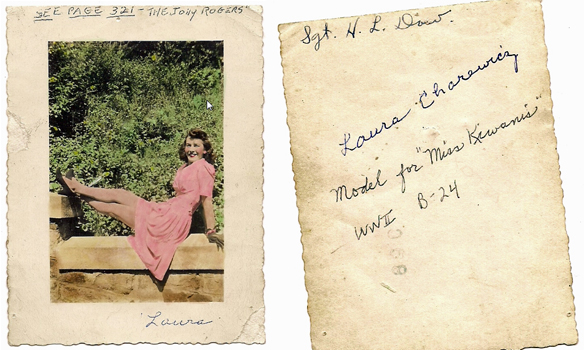 SEE PAGE 321 - "THE JOLLY ROGERS"
Laura
Sgt. H. L. Dow.
Laura Charewicz
Model for "Miss Kiwanis"
WWII B-24